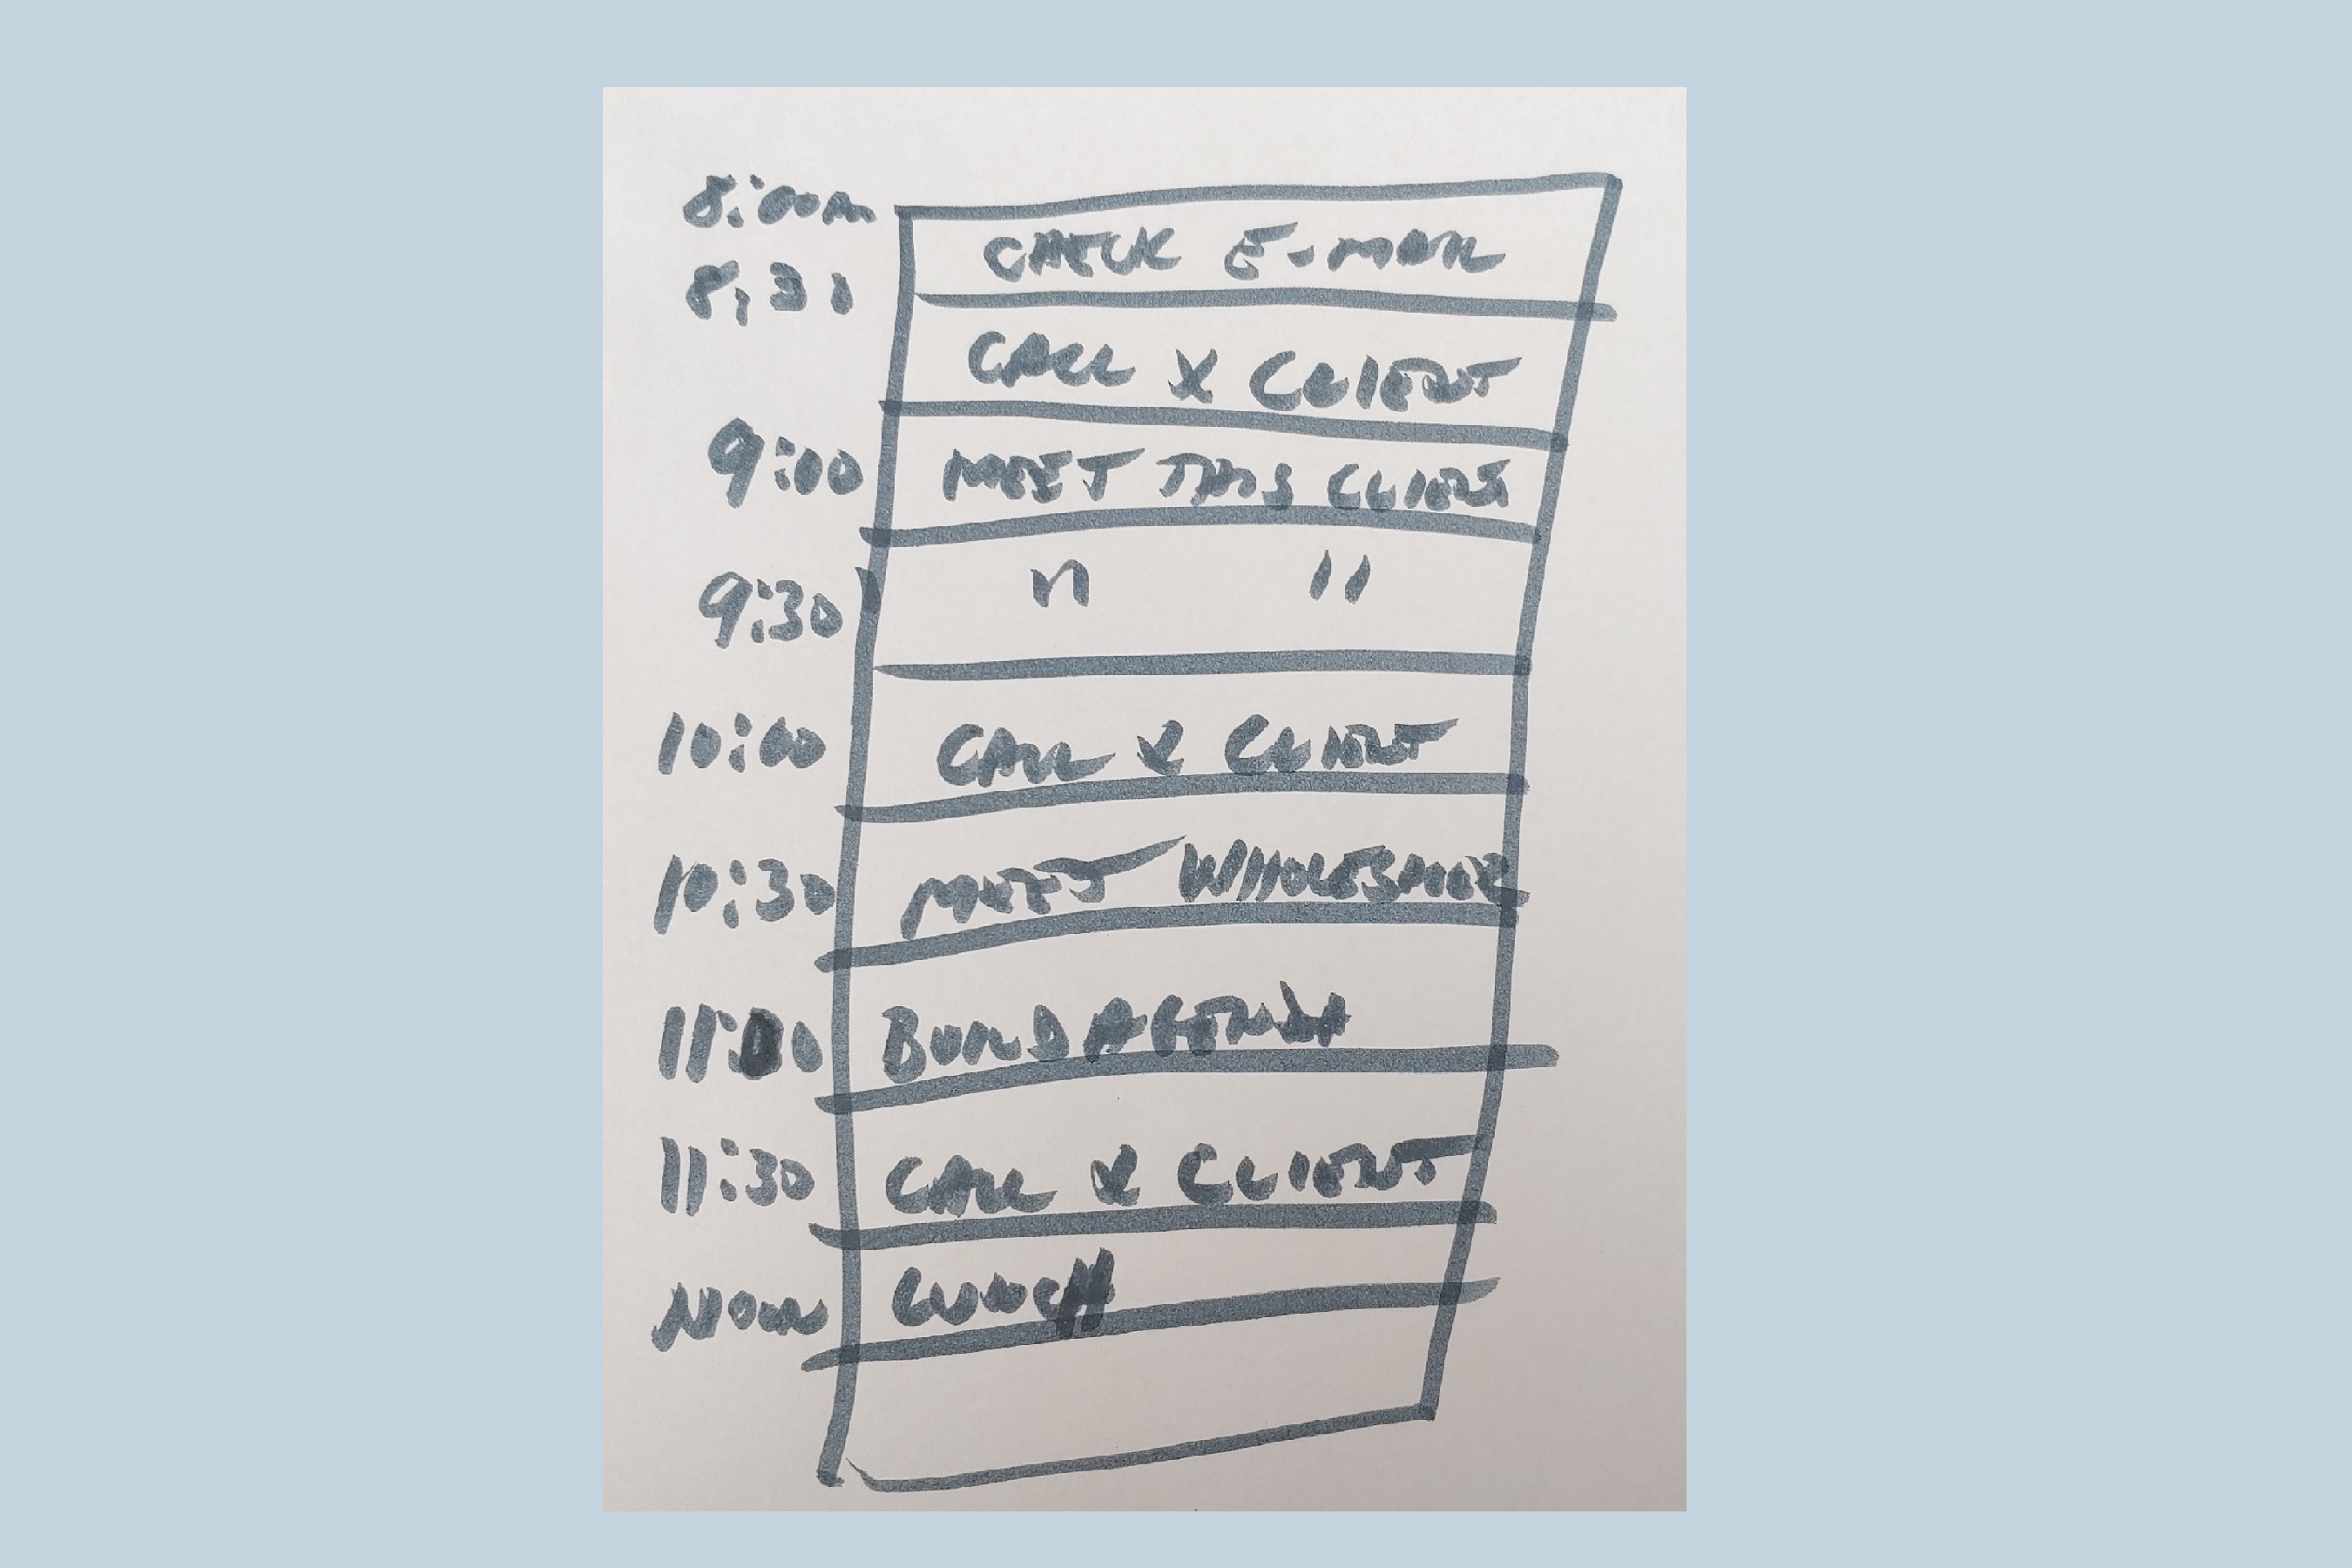 8:00AM CHECK E-MAIL
8:30 CALL X CLIENT
9:00 MEET THIS CLIENT
9:30 " "
10:00 CALL X CLIENT
10:30 MEET WHOLESALER
11:00 BUILD AGENDA
11:30 CALL X CLIENT
NOON LUNCH